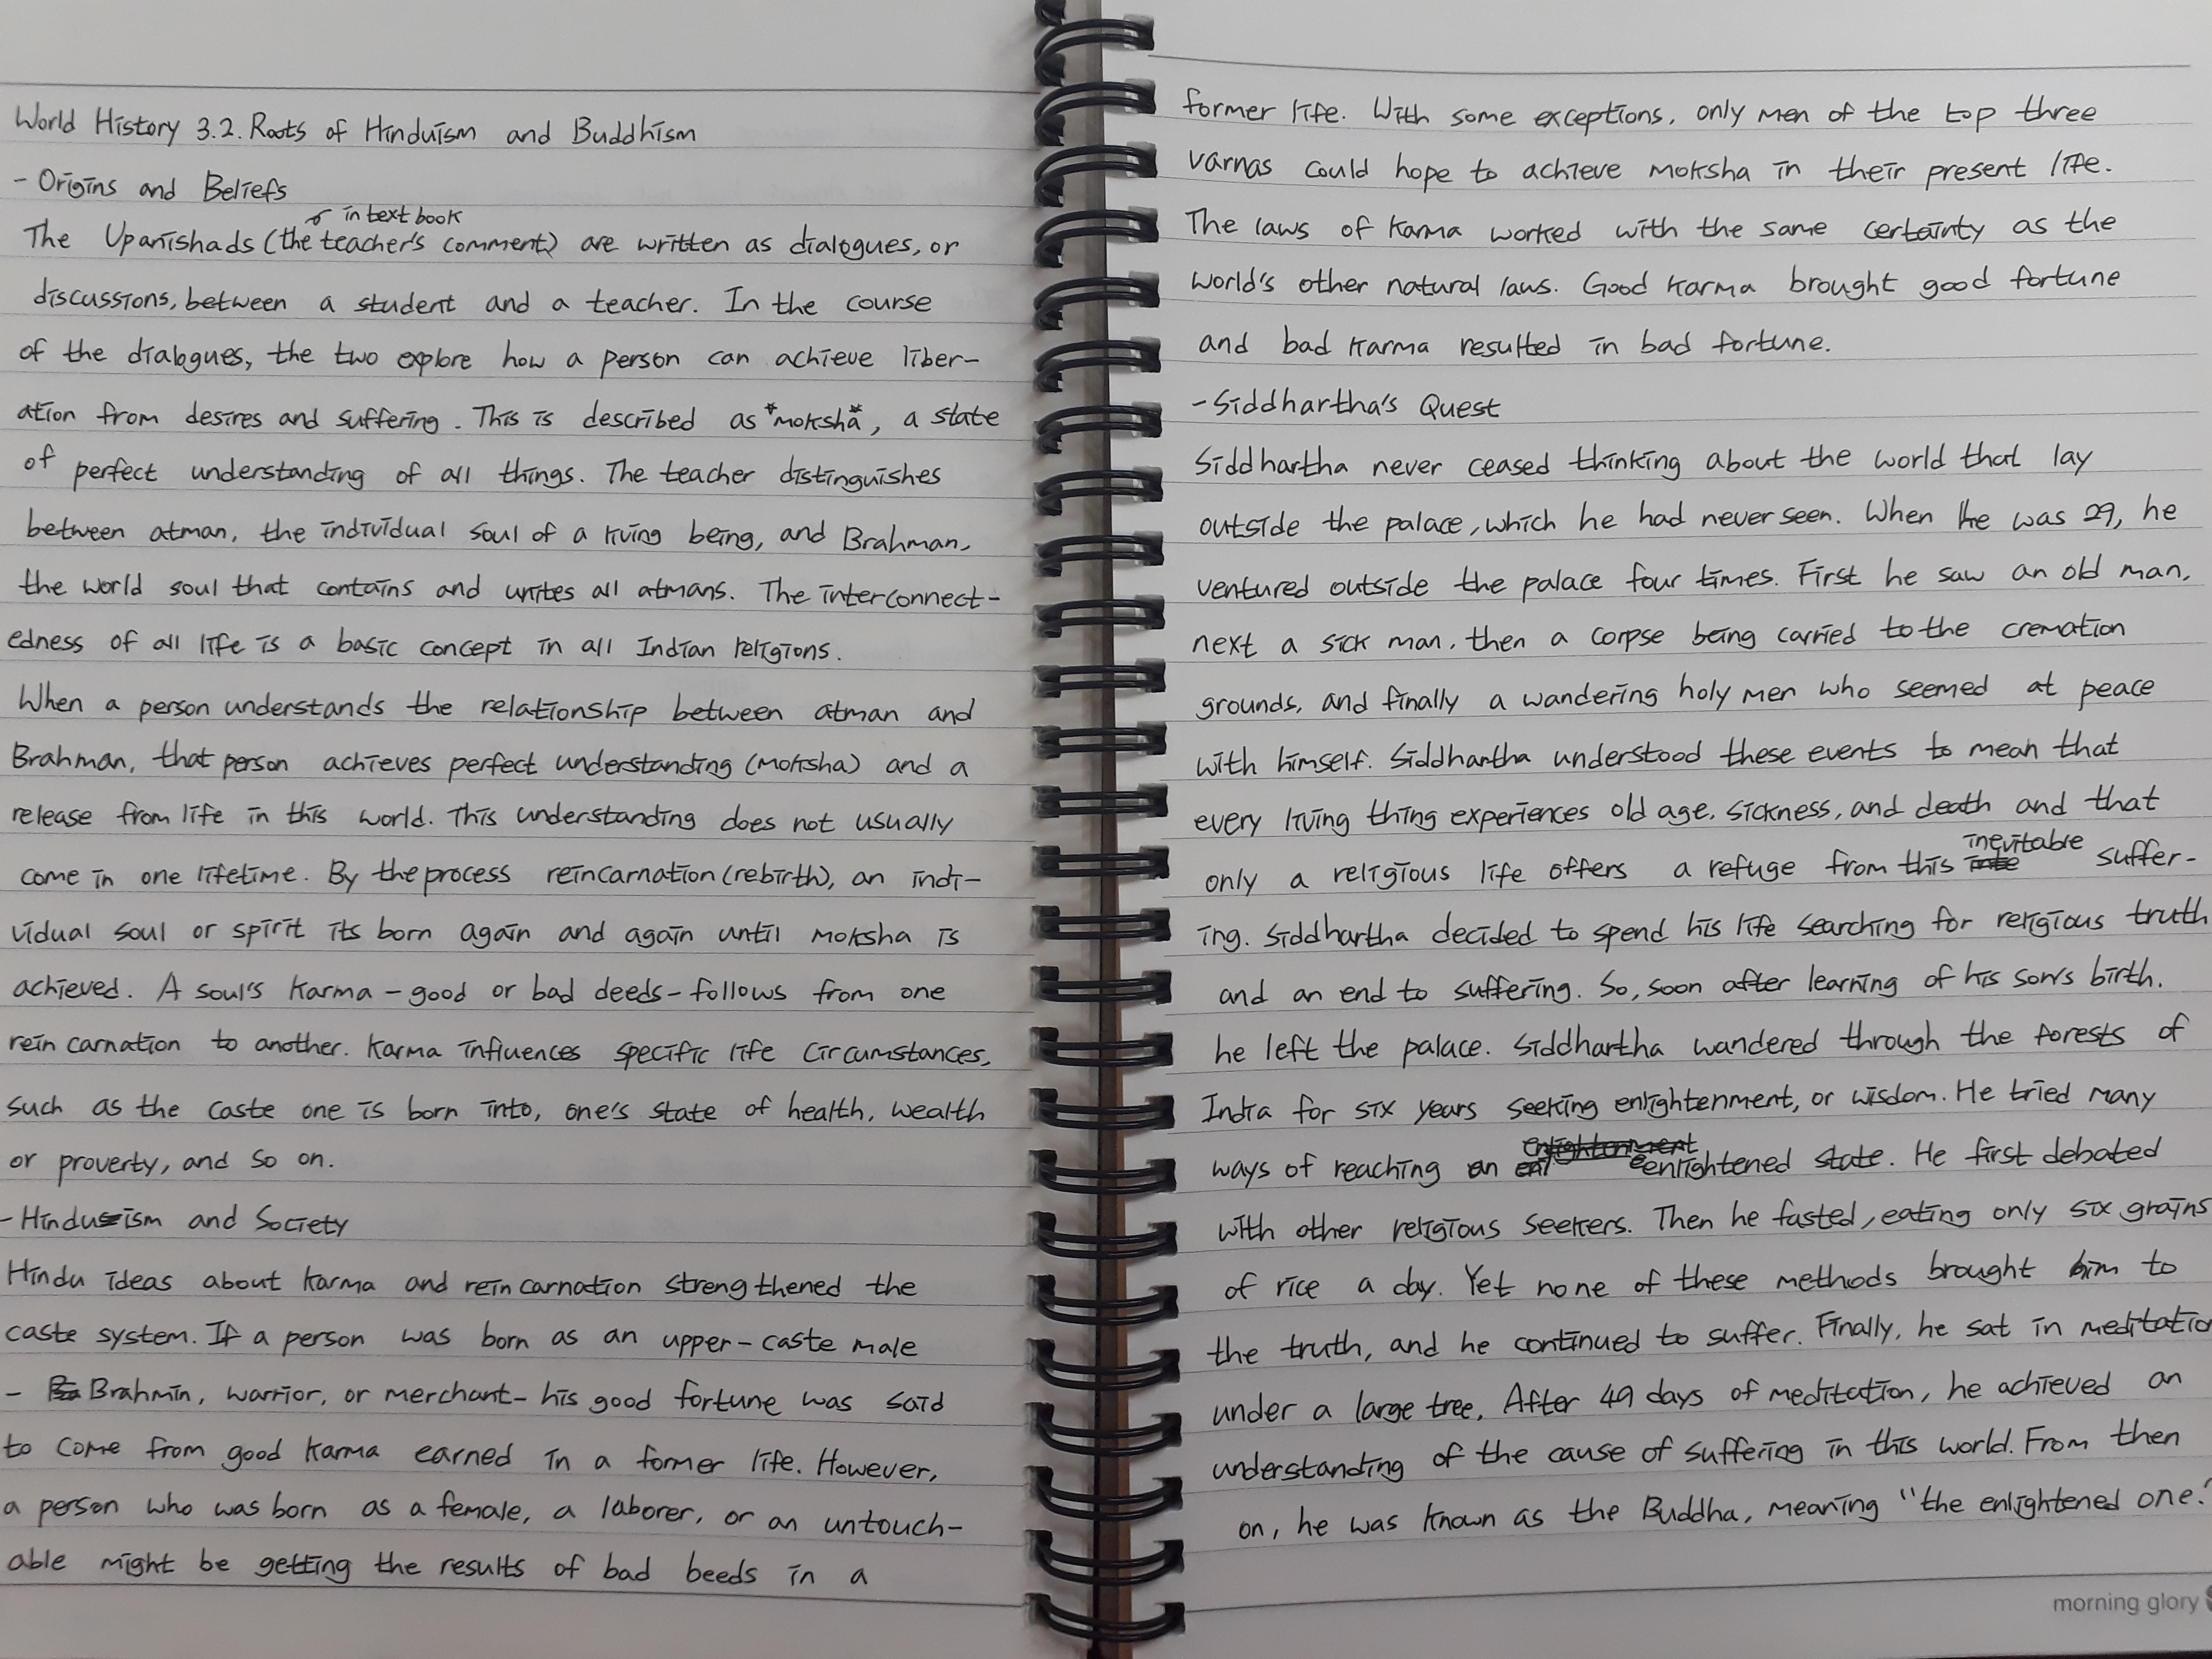 World History 3.2. Roots of Hinduism and Buddhism
- Origins and Beliefs
in text book
The Upanishads (the teacher's comment) are written as dialogues, or
discussions, between a student and a teacher. In the course
of the dialogues, the two explore how a person can achieve liber-
ation from desires and suffering. This is described as *moksha*, a state
of perfect understanding of all things. The teacher distinguishes
between atman, the individual soul of a living being, and Brahman,
the world soul that contains and unites all atmans. The interconnect-
edness of all life is a basic concept in all Indian religions.
When a person understands the relationship between atman and
Brahman, that person achieves perfect understanding (moksha) and a
release from life in this world. This understanding does not usually
come in one lifetime. By the process reincarnation (rebirth), an indi-
vidual soul or spirit its born again and again until moksha is
achieved. A soul's karma - good or bad deeds - follows from one
reincarnation to another. Karma influences specific life circumstances,
such as the caste one is born into, one's state of health, wealth
or proverty, and so on.
- Hinduism and Society
Hindu ideas about karma and reincarnation strengthened the
caste system. If a person was born as an upper-caste male
- Brahmin, warrior, or merchant - his good fortune was said
to come from good karma earned in a former life. However,
a person who was born as a female, a laborer, or an untouch-
able might be getting the results of bad beeds in a
former life. With some exceptions, only men of the top three
varnas could hope to achieve moksha in their present life.
The laws of karma worked with the same certainty as the
world's other natural laws. Good karma brought good fortune
and bad karma resulted in bad fortune.
- Siddhartha's Quest
Siddhartha never ceased thinking about the world that lay
outside the palace, which he had never seen. When he was 29, he
ventured outside the palace four times. First he saw an old man,
next a sick man, then a corpse being carried to the cremation
grounds, and finally a wandering holy men who seemed at peace
with himself. Siddhartha understood these events to mean that
every living thing experiences old age, sickness, and death and that
only a religious life offers a refuge from this inevitable suffer-
ing. Siddhartha decided to spend his life searching for religious truth
and an end to suffering. So, soon after learning of his son's birth,
he left the palace. Siddhartha wandered through the forests of
India for six years seeking enlightenment, or wisdom. He tried many
ways of reaching an enlightened state. He first debated
with other religious seekers. Then he fasted, eating only six grains
of rice a day. Yet none of these methods brought him to
the truth, and he continued to suffer. Finally, he sat in meditation
under a large tree. After 49 days of meditation, he achieved an
understanding of the cause of suffering in this world. From then
on, he was known as the Buddha, meaning "the enlightened one."
morning glory